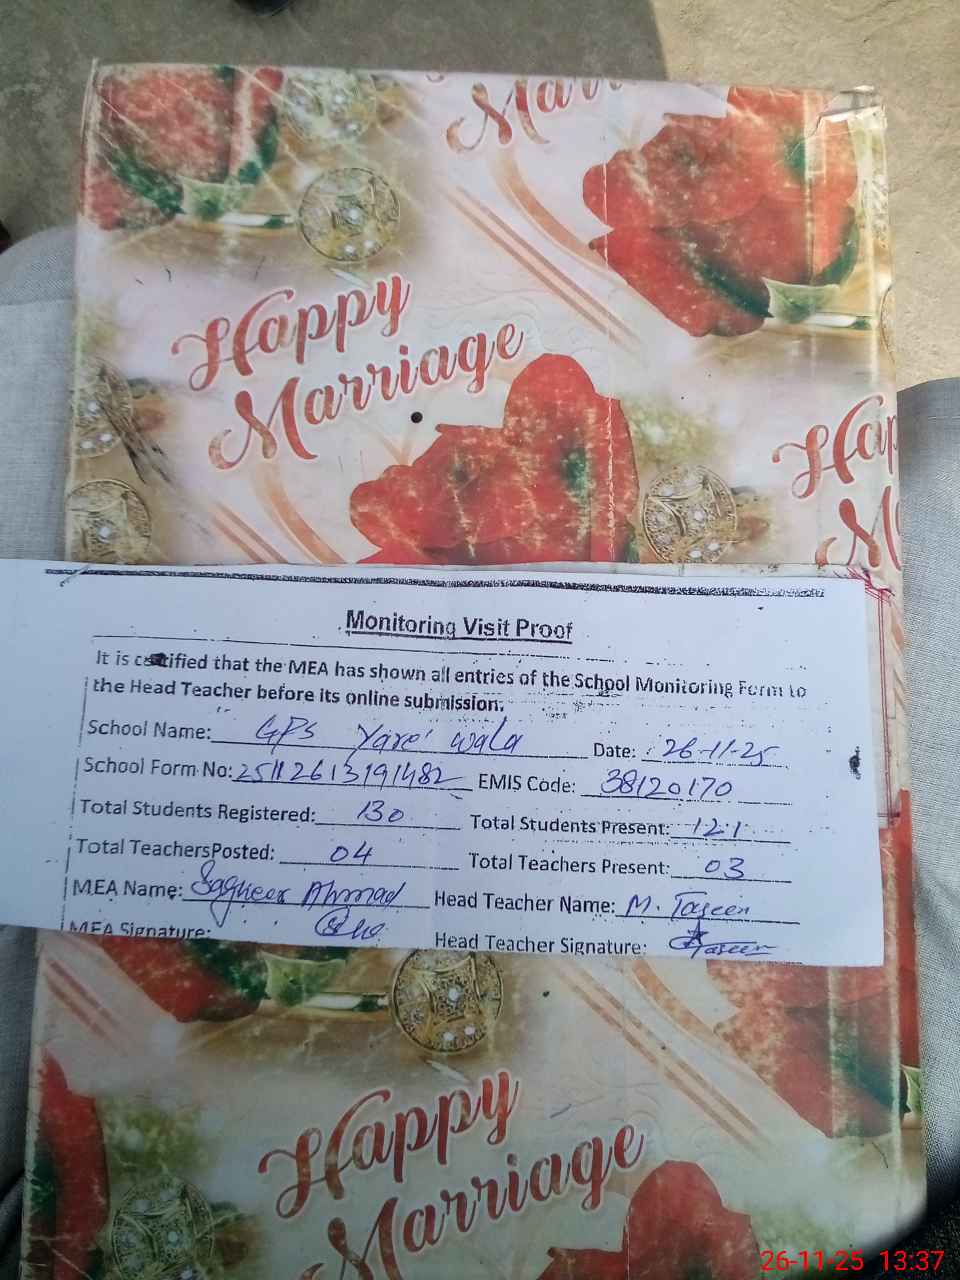 Marri
Happy
Marriage
Hap
M
Monitoring Visit Proof
It is certified that the MEA has shown all entries of the School Monitoring Form to
the Head Teacher before its online submission.
School Name: GPS Yare wala Date: 26-11-25
School Form No: 25112613191482 EMIS Code: 38120170
Total Students Registered: 130 Total Students Present: 121
Total TeachersPosted: 04 Total Teachers Present: 03
MEA Name: Sagheer Ahmad Head Teacher Name: M. Taseen
MEA Signature: Head Teacher Signature: Taseen
Happy
Marriage
26-11-25 13:37